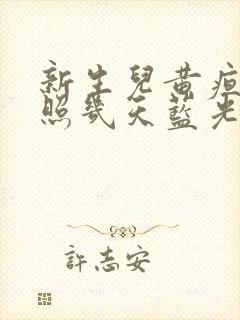 新生兒黃疸
照幾天藍光
許志安